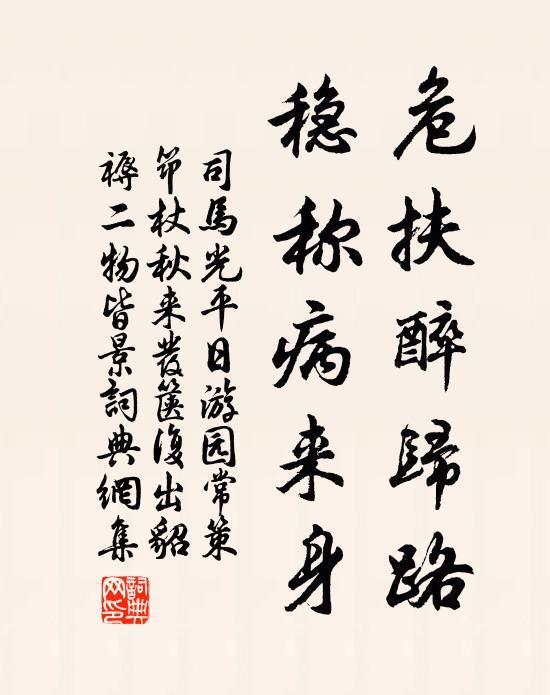 危扶醉歸路
穏称病来身
司馬光平日游园常策
筇杖秋来發篋復出貂
褥二物皆景詞典網集
詞典網印